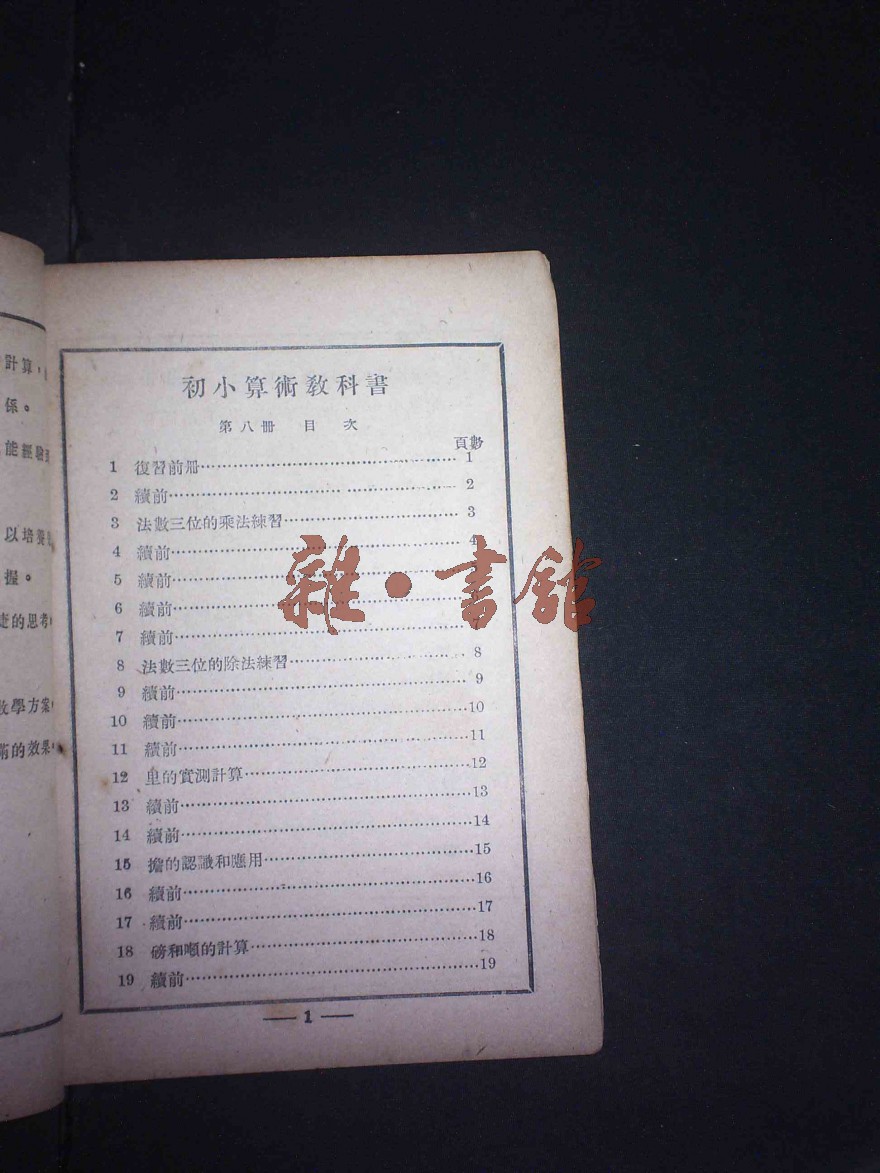 計算，
係。
能經驗
以培養
握。
的思考
教學方案
的效果
初小算術教科書
第八冊 目 次
頁數
1 復習前册 1
2 續前 2
3 法數三位的乘法練習 3
4 續前 4
5 續前
6 續前
7 續前
8 法數三位的除法練習 8
9 續前 9
10 續前 10
11 續前 11
12 里的實測計算 12
13 續前 13
14 續前 14
15 擔的認識和應用 15
16 續前 16
17 續前 17
18 磅和噸的計算 18
19 續前 19
— 1 —
雜·書館